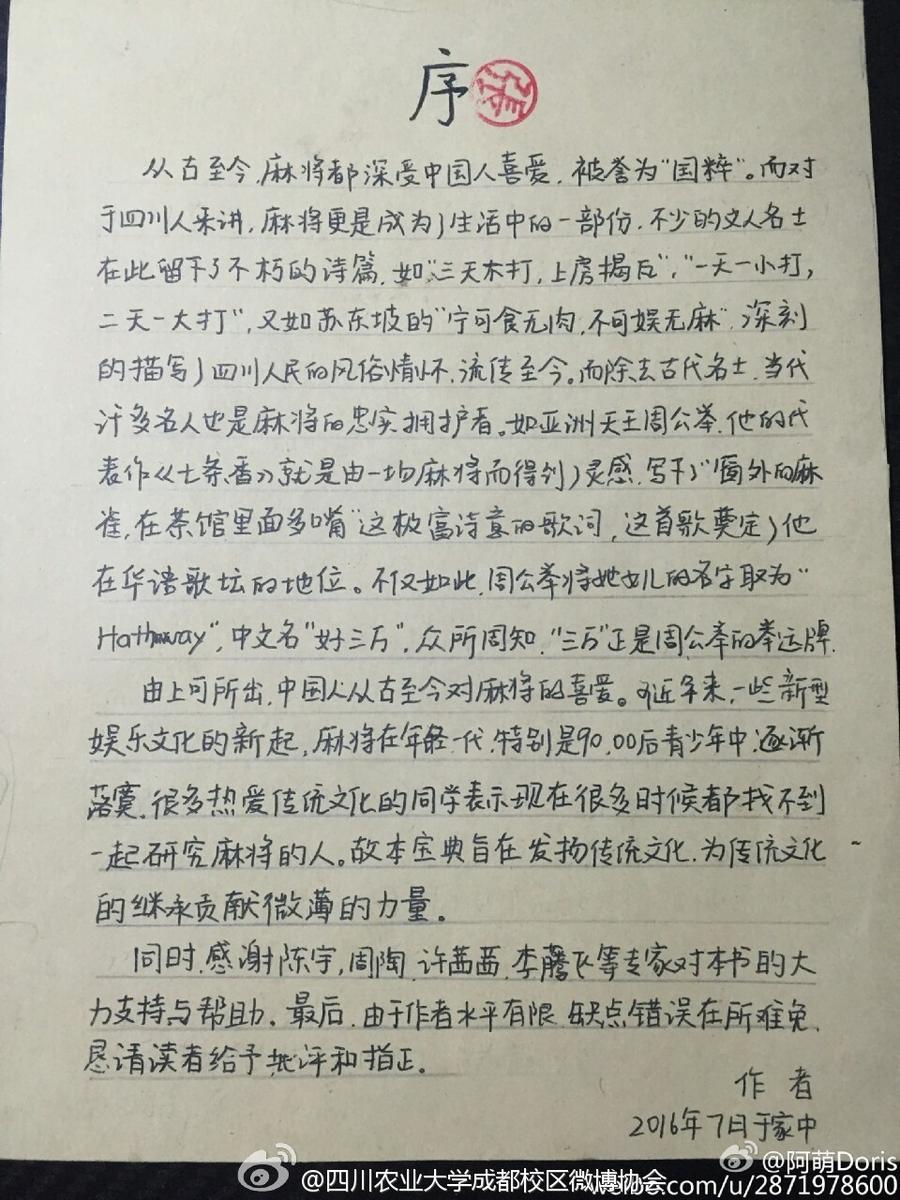 序
从古至今,麻将都深受中国人喜爱,被誉为"国粹"。而对
于四川人来讲,麻将更是成为了生活中的一部份,不少的文人名士
在此留下了不朽的诗篇,如"三天不打,上房揭瓦","一天一小打,
二天一大打",又如苏东坡的"宁可食无肉,不可娱无麻",深刻
的描写了四川人民的风俗情怀,流传至今。而除去古代名士,当代
许多名人也是麻将的忠实拥护者。如亚洲天王周公举,他的代
表作《七条香》就是由一场麻将而得到了灵感,写下了"窗外的麻
雀,在茶馆里面多嘴"这极富诗意的歌词,这首歌奠定了他
在华语歌坛的地位。不仅如此,周公举将她女儿的名字取为"
Hathaway",中文名"好三万",众所周知,"三万"正是周公举的幸运牌.
由上可所出,中国人从古至今对麻将的喜爱。可近年来,一些新型
娱乐文化的新起,麻将在年轻一代,特别是90,00后青少年中,逐渐
落寞,很多热爱传统文化的同学表示现在很多时候都找不到
一起研究麻将的人。故本宝典旨在发扬传统文化,为传统文化
的继承贡献微薄的力量。
同时,感谢陈宇,周陶,许茜茜,李腾飞等专家对本书的大
力支持与帮助。最后,由于作者水平有限,缺点错误在所难免,
恳请读者给予批评和指正。
作者
2016年7月于家中
@四川农业大学成都校区微博协会
@阿萌Doris
weibo.com/u/2871978600